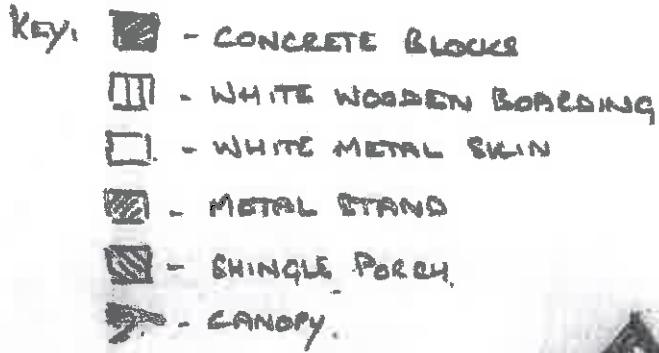 KEY: - CONCRETE BLOCKS
- WHITE WOODEN BOARDING
- WHITE METAL SKIN
- METAL STAND
- SHINGLE PORCH.
- CANOPY.